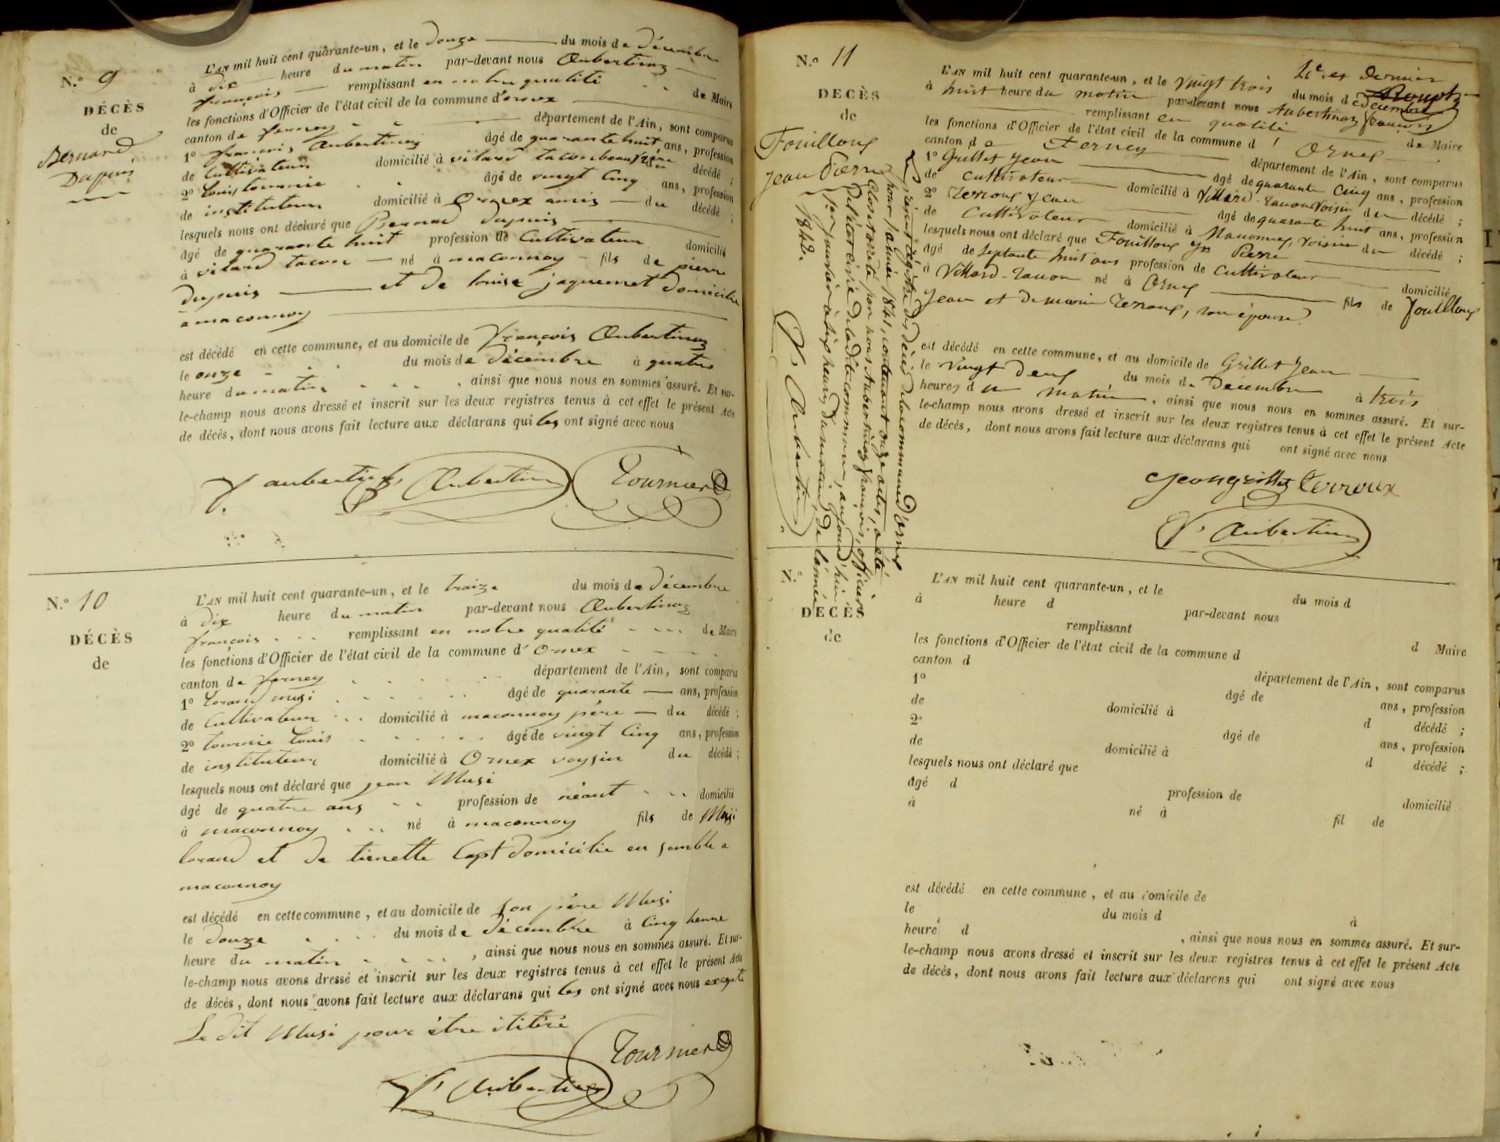 N.° 9
DÉCÈS
de
Bernard
Dupuis
L'AN mil huit cent quarante-un, et le douze du mois de décembre
à dix heure du matin par-devant nous Aubertinaz
françois remplissant en notre qualité de Maire
les fonctions d'Officier de l'état civil de la commune d'ornex
canton de ferney département de l'Ain, sont comparus
1° françois Aubertinaz âgé de quarante huit ans, profession
de Cultivateur domicilié à vilard tacon décédé ;
2° Louis tournier âgé de vingt cinq ans, profession
de instituteur domicilié à Ornex amis du décédé ;
lesquels nous ont déclaré que Bernard dupuis
âgé de quarante huit profession de Cultivateur domicilié
à vilard tacon né à maconnoy fils de pierre
dupuis et de louise jaquemet domicilié
a maconnoy
est décédé en cette commune, et au domicile de françois Aubertinaz
le onze du mois de décembre à quatre
heure du matin , ainsi que nous nous en sommes assuré. Et sur-
le-champ nous avons dressé et inscrit sur les deux registres tenus à cet effet le présent Acte
de décès, dont nous avons fait lecture aux déclarans qui les ont signé avec nous
f. aubertin Aubertin Tournier
N.° 10
DÉCÈS
de
L'AN mil huit cent quarante-un, et le traize du mois de décembre
à dix heure du matin par-devant nous Aubertinaz
françois remplissant en notre qualité de Maire
les fonctions d'Officier de l'état civil de la commune d'Ornex
canton de ferney département de l'Ain, sont comparus
1° Lorand musi âgé de quarante ans, profession
de Cultivateur domicilié à maconnoy père du décédé ;
2° tournie Louis âgé de vingt cinq ans, profession
de instituteur domicilié à Ornex voysin du décédé ;
lesquels nous ont déclaré que jean Musi
âgé de quatre ans profession de néant domicilié
à maconnoy né à maconnoy fils de Musi
lorand et de tienette Capt domicilie en semble a
maconnoy
est décédé en cette commune, et au domicile de son père Musi
le douze du mois de décembre à cinq heure
heure du matin , ainsi que nous nous en sommes assuré. Et sur-
le-champ nous avons dressé et inscrit sur les deux registres tenus à cet effet le présent Acte
de décès, dont nous avons fait lecture aux déclarans qui les ont signé avec nous excepté
Le dit Musi pour être ilitéré
Tournier
f. Aubertin
N.° 11
DÉCÈS
de
Fouilloux
Jean Pierre
11e et dernier
L'AN mil huit cent quarante-un, et le vingt trois du mois de décembre
à huit heure du matin par-devant nous Aubertinaz françois
remplissant en qualité de Maire
les fonctions d'Officier de l'état civil de la commune d' Ornex
canton de Ferney département de l'Ain, sont comparus
1° Grillet Jean âgé de quarante cinq ans, profession
de Cultivateur domicilié à Villard-Tacon voisin du décédé ;
2° Terroux Jean âgé de quarante huit ans, profession
de Cultivateur domicilié à Maconnex, voisin du décédé ;
lesquels nous ont déclaré que Fouilloux Jn Pierre
âgé de septante huit ans profession de Cultivateur domicilié
à Villard-Tacon né à Ornex fils de Fouilloux
Jean et de marie Terroux, son épouse
est décédé en cette commune, et au domicile de Grillet Jean
le vingt deux du mois de Décembre à trois
heures du matin , ainsi que nous nous en sommes assuré. Et sur-
le-champ nous avons dressé et inscrit sur les deux registres tenus à cet effet le présent Acte
de décès, dont nous avons fait lecture aux déclarans qui ont signé avec nous
Jean grillet Terroux
f. Aubertin
Le présent registre des décès de la commune d'Ornex
pour l'année 1841, contenant onze actes, a été
clos et arrêté par nous Aubertinaz françois, officier
de l'état civil de la dite commune, aujourd'hui
1er janvier à six heures du matin, de l'année
1842.
f. Aubertin
N.°
DÉCÈS
de
L'AN mil huit cent quarante-un, et le du mois d
à heure d par-devant nous
remplissant d Maire
les fonctions d'Officier de l'état civil de la commune d
canton d département de l'Ain, sont comparus
1° âgé de ans, profession
de domicilié à d décédé ;
2° âgé de ans, profession
de domicilié à d décédé ;
lesquels nous ont déclaré que
âgé d profession de domicilié
à né à fil de
est décédé en cette commune, et au domicile de
le du mois d à
heure d , ainsi que nous nous en sommes assuré. Et sur-
le-champ nous avons dressé et inscrit sur les deux registres tenus à cet effet le présent Acte
de décès, dont nous avons fait lecture aux déclarans qui ont signé avec nous